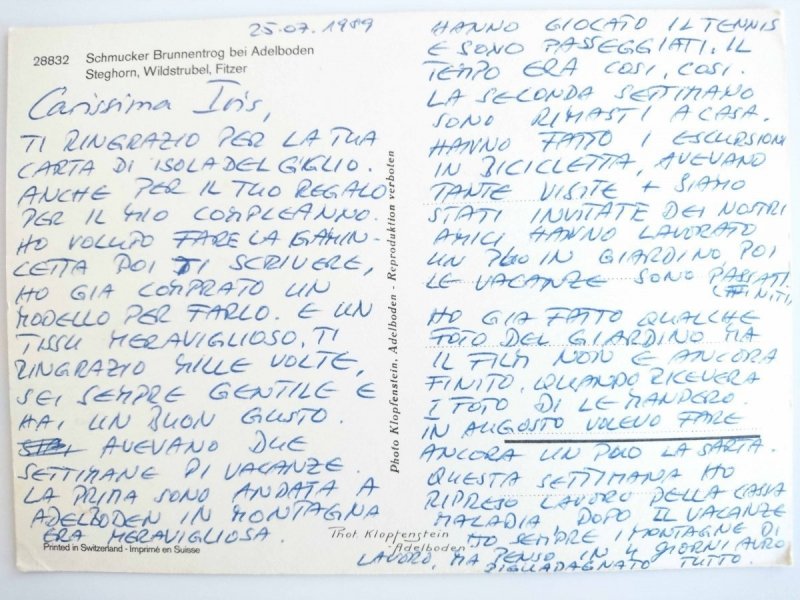 25.07.1989
28832 Schmucker Brunnentrog bei Adelboden
Steghorn, Wildstrubel, Fitzer
Carissima Iris,
TI RINGRAZIO PER LA TUA
CARTA DI ISOLA DEL GIGLIO.
ANCHE PER IL TUO REGALO
PER IL MIO COMPLEANNO.
HO VOLUTO FARE LA GAMIN-
LETTA POI TI SCRIVERE,
HO GIA COMPRATO UN
MODELLO PER FARLO. E UN
TISSU MERAVIGLIOSO, TI
RINGRAZIO MILLE VOLTE,
SEI SEMPRE GENTILE E
HAI UN BUON GUSTO.
AVEVANO DUE
SETTIMANE DI VACANZE.
LA PRIMA SONO ANDATA A
ADELBODEN IN MONTAGNA
ERA MERAVIGLIOSA.
Printed in Switzerland - Imprimé en Suisse
Photo Klopfenstein, Adelboden - Reproduktion verboten
Phot. Klopfenstein
Adelboden
HANNO GIOCATO IL TENNIS
E SONO PASSEGGIATI. IL
TEMPO ERA COSI, COSI.
LA SECONDA SETTIMANO
SONO RIMASTI A CASA.
HANNO FATTO I ESCURSIONI
IN BICICLETTA, AVEVANO
TANTE VISITE + SIAMO
STATI INVITATE DEI NOSTRI
AMICI HANNO LAVORATO
UN PUO IN GIARDINO, POI
LE VACANZE SONO PASSATI.
(FINITI)
HO GIA FATTO QUALCHE
FOTO DEL GIARDINO MA
IL FILM NON E ANCORA
FINITO. QUANDO RICEVERA
I FOTO DI LE MANDERO.
IN AUGOSTO VOLEVO FARE
ANCORA UN PUO LA SARTA.
QUESTA SETTIMANA HO
RIPRESO LAVORO DELLA CASSA
MALADIA DOPO IL VACANZE
HO SEMPRE I MONTAGNE DI
LAVORO, MA PENSO IN 4 GIORNI AURO
RIGUADAGNATO TUTTO.